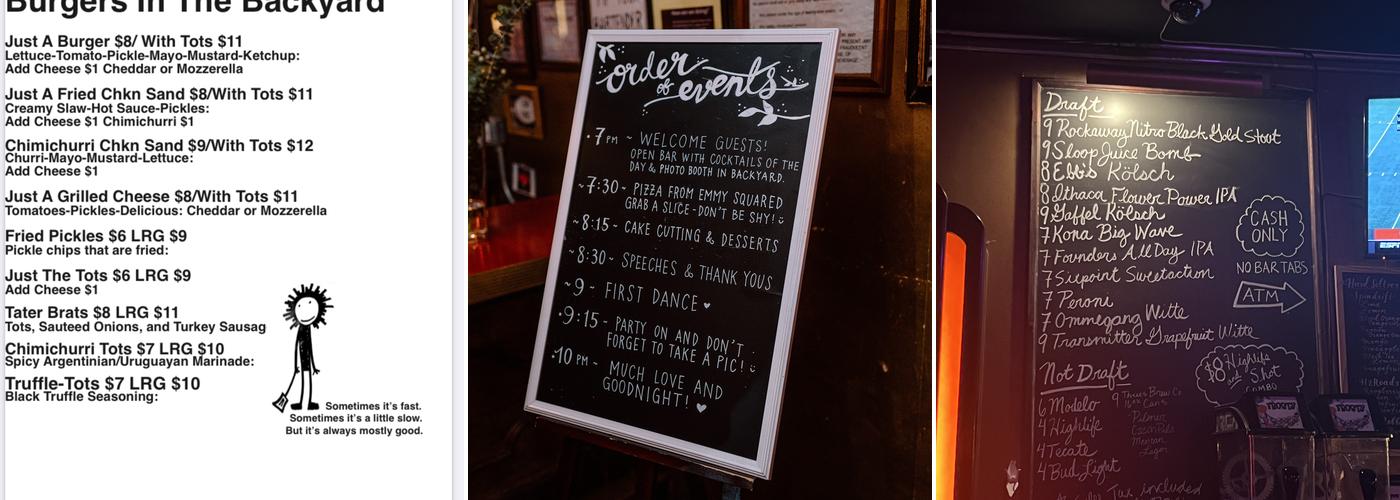 Burgers In The Backyard
Just A Burger $8/ With Tots $11
Lettuce-Tomato-Pickle-Mayo-Mustard-Ketchup:
Add Cheese $1 Cheddar or Mozzerella
Just A Fried Chkn Sand $8/With Tots $11
Creamy Slaw-Hot Sauce-Pickles:
Add Cheese $1 Chimichurri $1
Chimichurri Chkn Sand $9/With Tots $12
Churri-Mayo-Mustard-Lettuce:
Add Cheese $1
Just A Grilled Cheese $8/With Tots $11
Tomatoes-Pickles-Delicious: Cheddar or Mozzerella
Fried Pickles $6 LRG $9
Pickle chips that are fried:
Just The Tots $6 LRG $9
Add Cheese $1
Tater Brats $8 LRG $11
Tots, Sauteed Onions, and Turkey Sausag
Chimichurri Tots $7 LRG $10
Spicy Argentinian/Uruguayan Marinade:
Truffle-Tots $7 LRG $10
Black Truffle Seasoning:
Sometimes it's fast.
Sometimes it's a little slow.
But it's always mostly good.
order
of events
7PM ~ WELCOME GUESTS!
OPEN BAR WITH COCKTAILS OF THE
DAY & PHOTO BOOTH IN BACKYARD.
~7:30~ PIZZA FROM EMMY SQUARED
GRAB A SLICE-DON'T BE SHY!
~8:15- CAKE CUTTING & DESSERTS
~8:30- SPEECHES & THANK YOUS
~9- FIRST DANCE
9:15- PARTY ON AND DON'T
FORGET TO TAKE A PIC!
10 PM- MUCH LOVE AND
GOODNIGHT!
Draft
9 Rockaway Nitro Black Gold Stout
9 Sloop Juice Bomb
8 Ebb's Kölsch
8 Ithaca Flower Power IPA
9 Gaffel Kölsch
7 Kona Big Wave
7 Founders All Day IPA
7 Sixpoint Sweetaction
7 Peroni
7 Ommegang Witte
9 Transmitter Grapefruit Witte
CASH
ONLY
NO BAR TABS
ATM
Not Draft
6 Modelo
4 Highlife
4 Tecate
4 Bud Light
Tax included
$8 Highlife
and Shot
COMBO
9 Threes Brew Co
16oz Cans
Pilsner
Mexican
Lager
ESPN